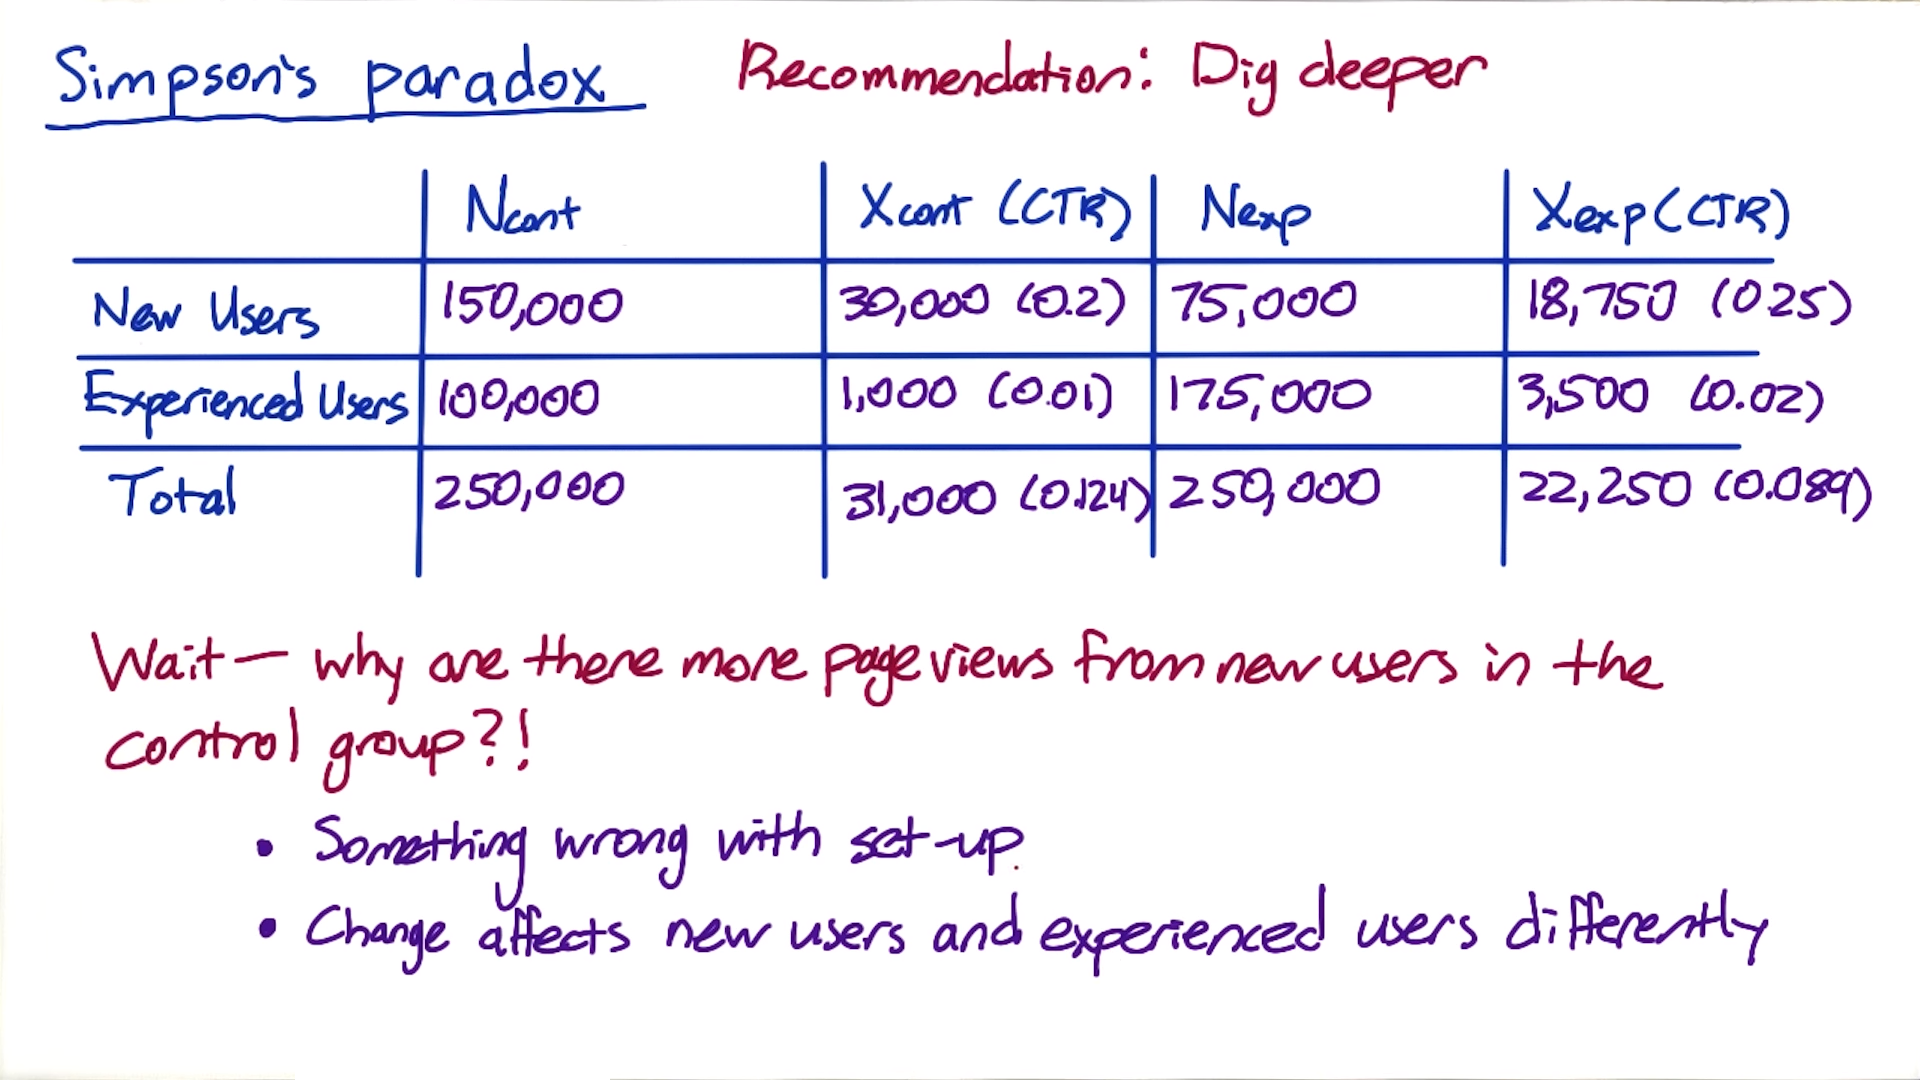 Simpson's paradox Recommendation: Dig deeper
Ncont Xcont (CTR) Nexp Xexp (CTR)
New Users 150,000 30,000 (0.2) 75,000 18,750 (0.25)
Experienced Users 100,000 1,000 (0.01) 175,000 3,500 (0.02)
Total 250,000 31,000 (0.124) 250,000 22,250 (0.089)
Wait— why are there more page views from new users in the
control group?!
• Something wrong with set-up.
• Change affects new users and experienced users differently